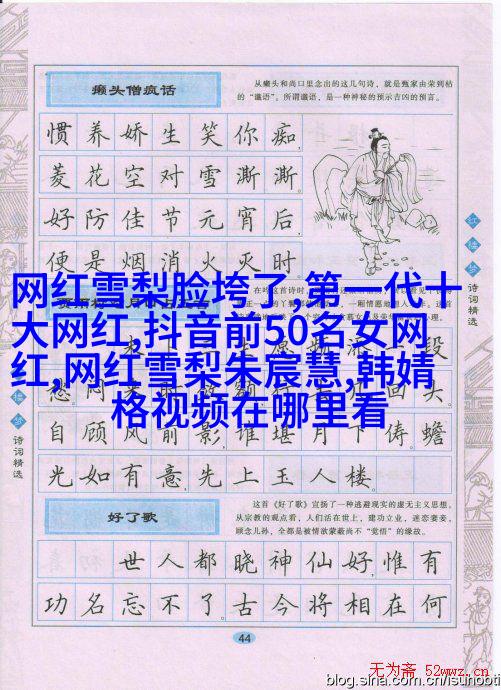 癞头僧疯话
从癞头和尚口里念出的这几句诗，就是甄家由荣到枯
的“谶语”。所谓谶语，是一种神秘的预示吉凶的预言。
惯养娇生笑你痴，
菱花空对雪澌澌。
好防佳节元宵后，
便是烟消火灭时。
网红雪梨脸垮了,第一代十
大网红,抖音前50名女网
红,网红雪梨朱宸慧,韩婧
格视频在哪里看
自顾风前影，谁堪月下俦。蟾
光如有意，先上玉人楼。
好了歌
这首《好了歌》宣扬了一种逃避现实的虚无主义思想。
从宗教的观点看，人们活在世上，建功立业，迷恋妻妾，
顾念儿孙，全都是被情欲蒙蔽尚不“觉悟”的缘故。
世人都晓神仙好，惟有
功名忘不了。古今将相在何
44
红楼梦
诗词精选
诗词精选
无为斋 52wwz.cn
blog.sina.com.cn/isunobti